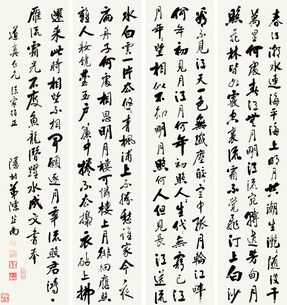 春江潮水連海平海上明月共潮生灔灔隨波千
萬里何處春江無月明江流宛轉遶芳甸月
照花林皆如霰空裏流霜不覺飛汀上白沙
看不見江天一色無纖塵皎皎空中孤月輪江畔
何年初見月江月何年初照人人生代代無窮已江
月年年望相似不知明月照何人但見長江送流
水白雲一片去悠悠青楓浦上不勝愁誰家今夜
扁舟子何處相思明月樓可憐樓上月徘徊應照
離人妝鏡臺玉戶簾中捲不去擣衣砧上拂
還來此時相望不相聞願逐月華流照君鴻
雁長飛光不度魚龍潛躍水成文書奉
道真仁兄法家雅正